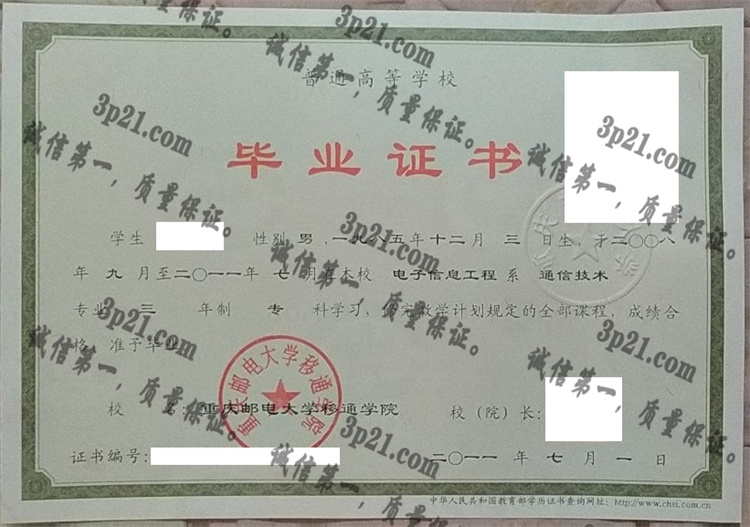 普通高等学校
毕业证书
学生 性别 男,一九八五年十二月 三 日生,于二〇〇八
年 九 月至二〇一一年 七 月在本校 电子信息工程 系 通信技术
专业 三 年制 专 科学习,修完教学计划规定的全部课程,成绩合
格,准予毕业
校 名:重庆邮电大学移通学院 校(院)长:
重庆邮电大学移通学院
证书编号: 二〇一一 年 七 月 一 日
中华人民共和国教育部学历证书查询网址:http://www.chsi.com.cn
3p21.com
诚信第一,质量保证。
3p21.com
诚信第一,质量保证。
3p21.com
诚信第一,质量保证。
3p21.com
诚信第一,质量保证。
3p21.com
诚信第一,质量保证。
3p21.com
诚信第一,质量保证。
3p21.com
诚信第一,质量保证。
3p21.com